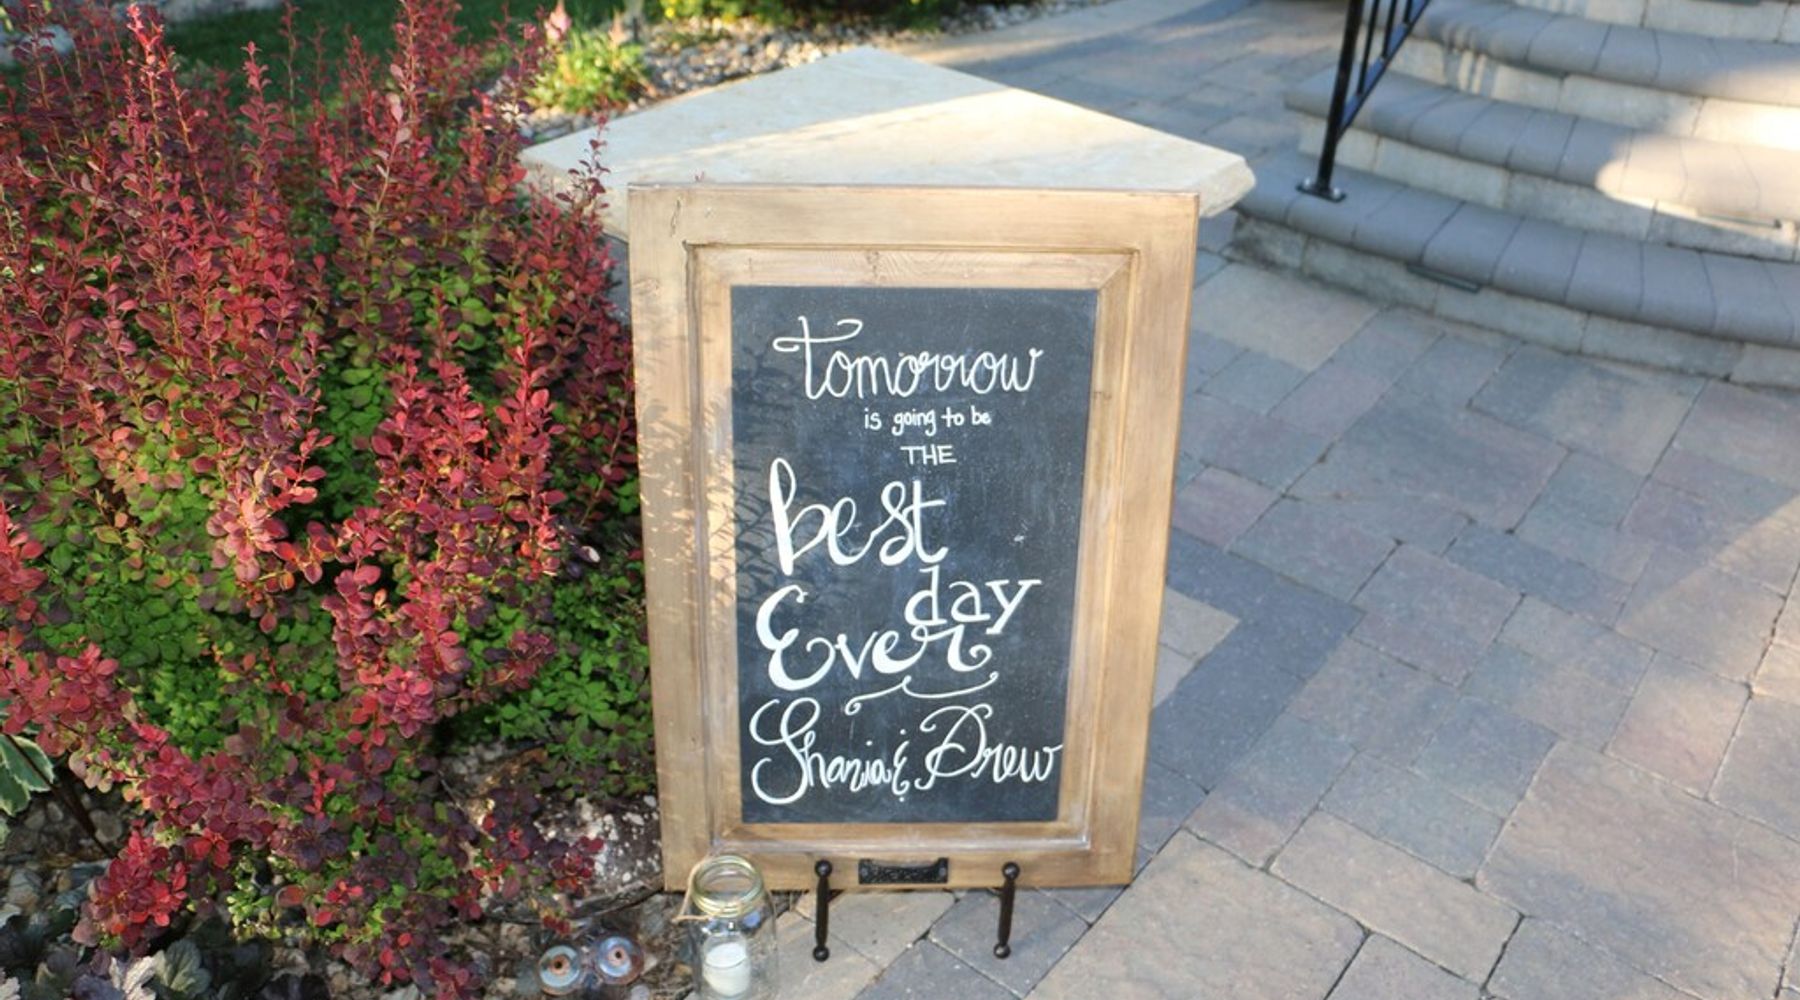 tomorrow
is going to be
THE
best
day
Ever
Sharia & Drew